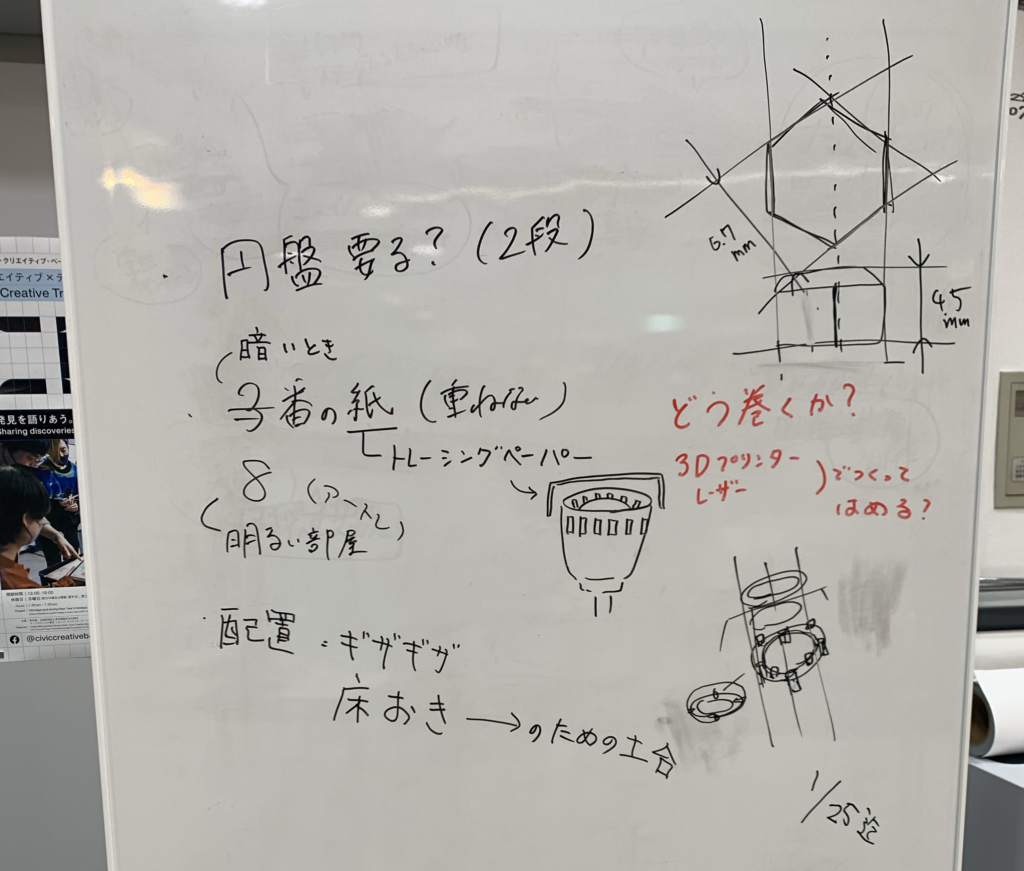 ・円盤 要る？(2段)
暗いとき
・3番の紙 (重ねない)
トレーシングペーパー
8
明るい部屋
・配置：ギザギザ
床おき → のための土台
6.7
mm
4.5
mm
どう巻くか？
3Dプリンター
レーザー
でつくって
はめる？
1/25迄
クリエイティブ・ベー
エイティブ×テ
Creative Te
発見を語りあう。
Sharing discoveries
@civiccreativeba